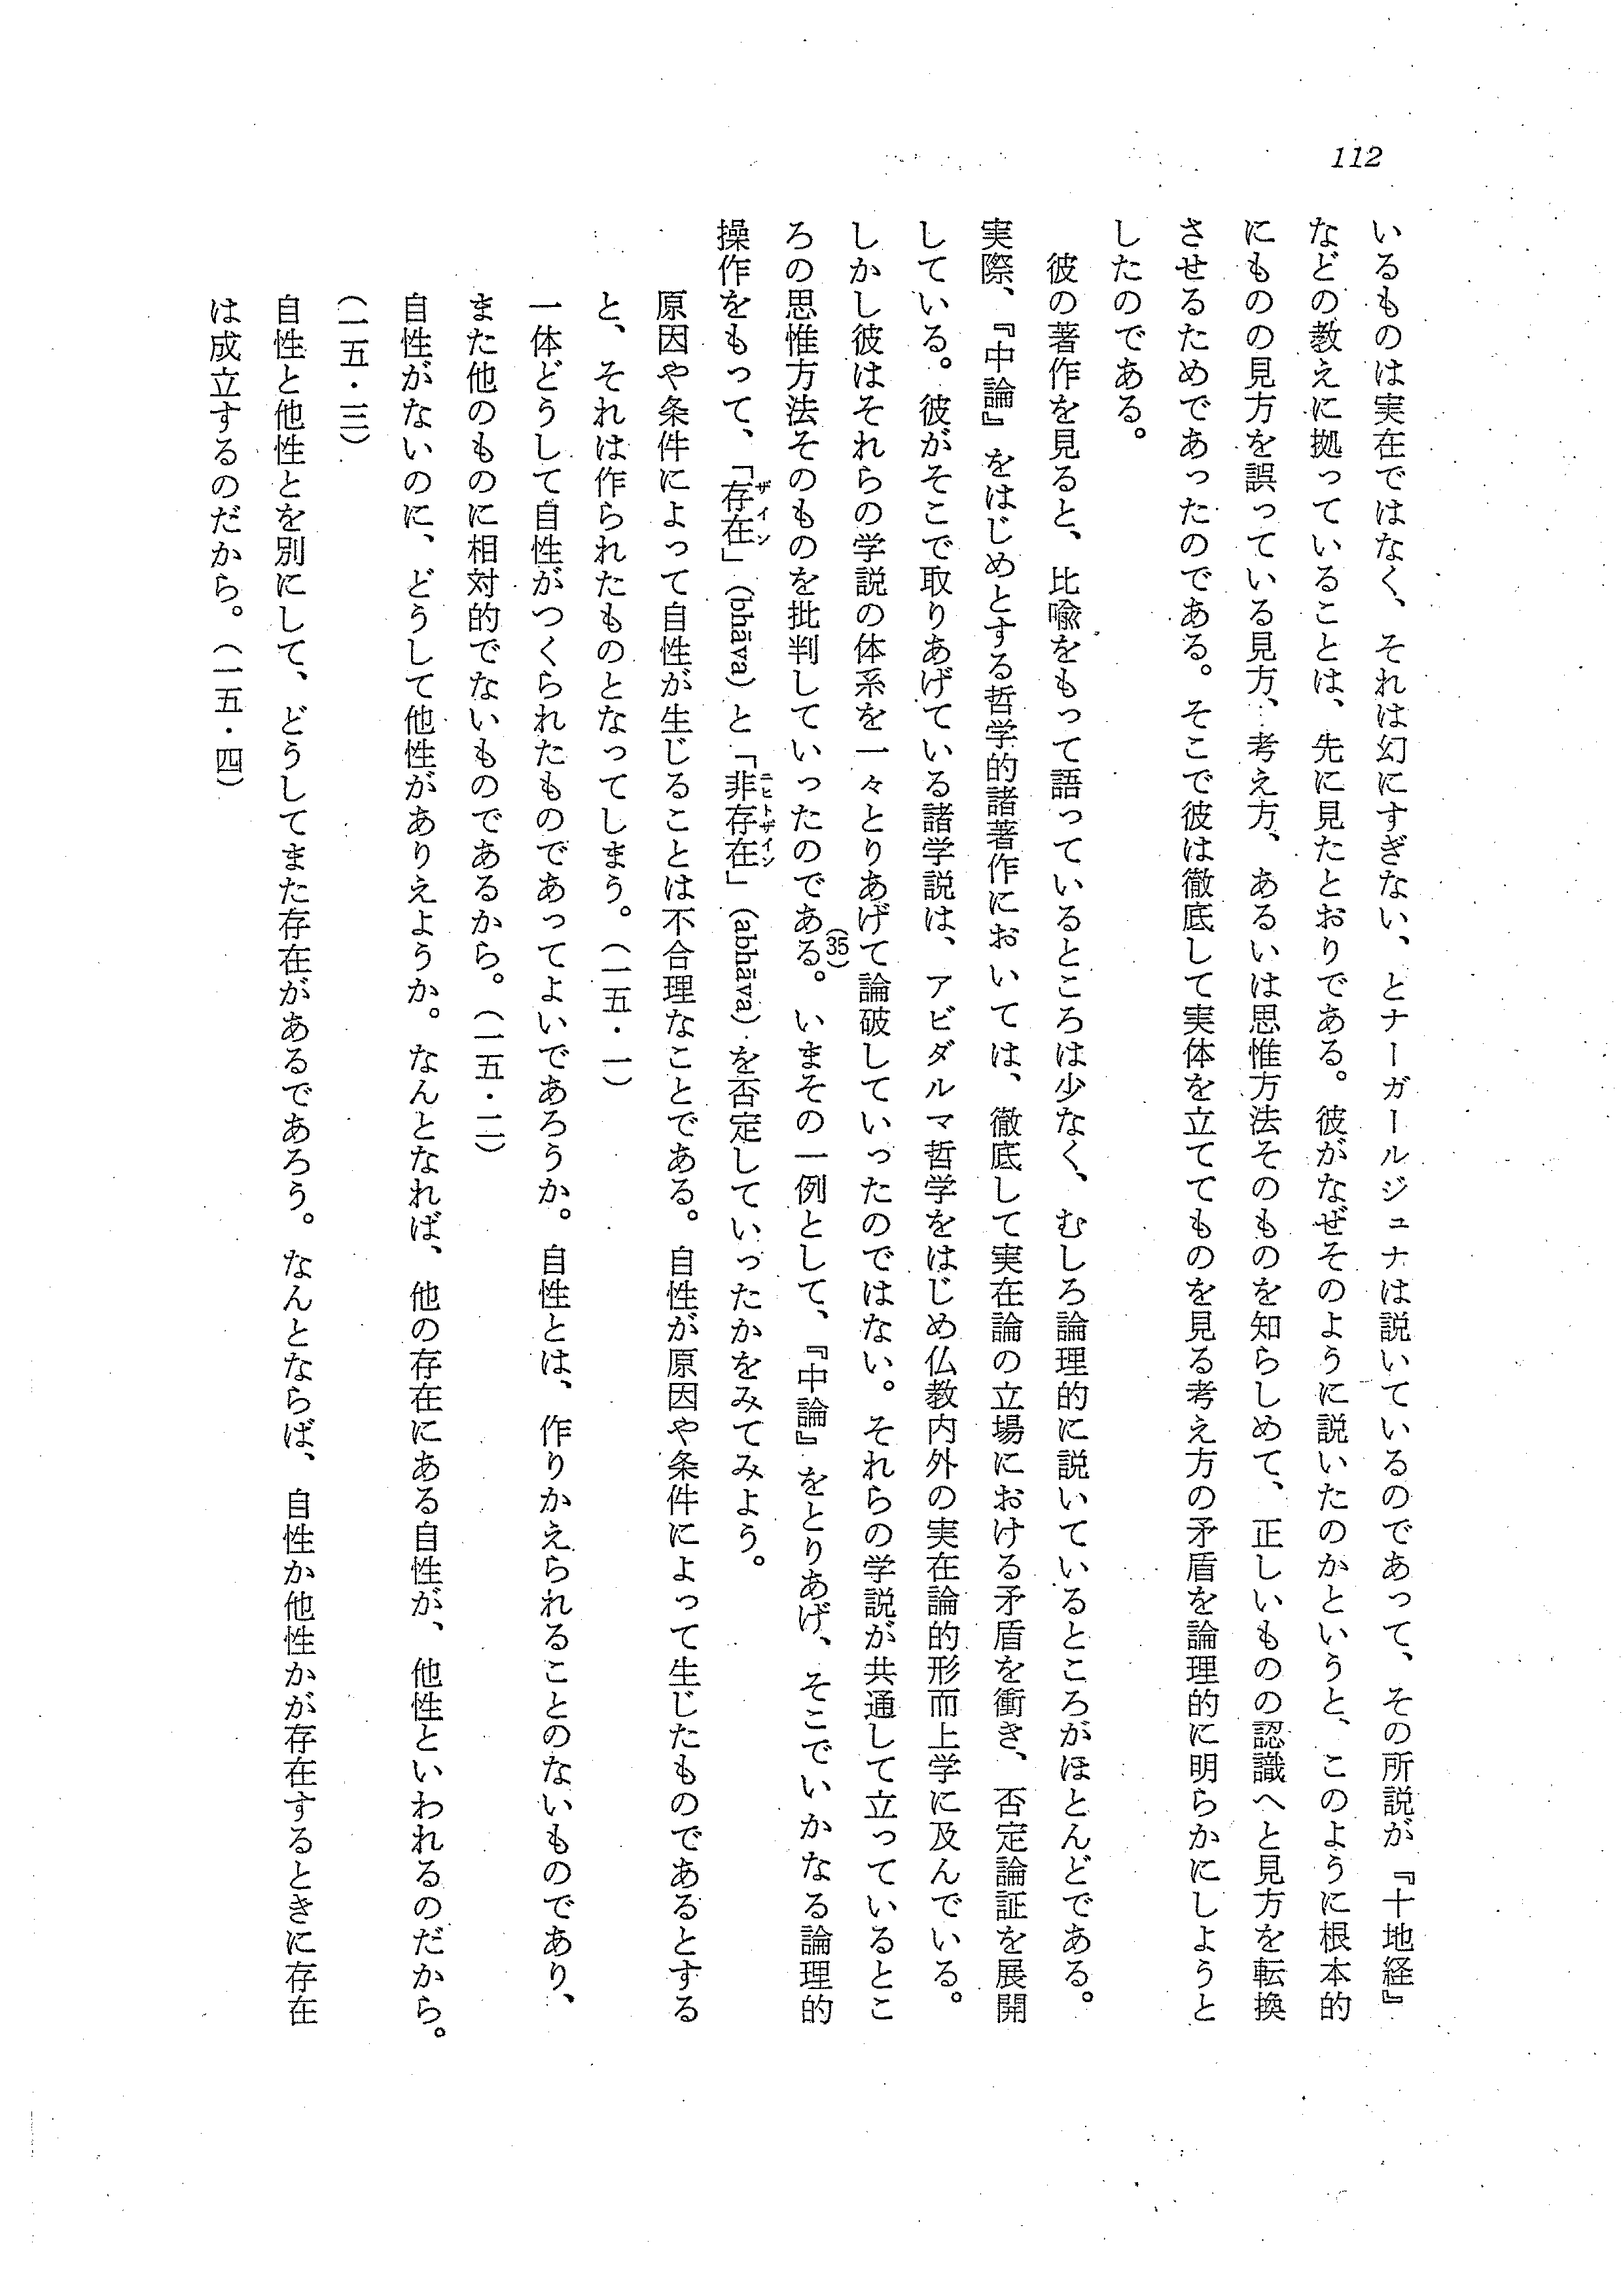 112
いるものは実在ではなく、それは幻にすぎない、とナーガールジュナは説いているのであって、その所説が『十地経』
などの教えに拠っていることは、先に見たとおりである。彼がなぜそのように説いたのかというと、このように根本的
にものの見方を誤っている見方、考え方、あるいは思惟方法そのものを知らしめて、正しいものの認識へと見方を転換
させるためであったのである。そこで彼は徹底して実体を立ててものを見る考え方の矛盾を論理的に明らかにしようと
したのである。
彼の著作を見ると、比喩をもって語っているところは少なく、むしろ論理的に説いているところがほとんどである。
実際、『中論』をはじめとする哲学的諸著作においては、徹底して実在論の立場における矛盾を衝き、否定論証を展開
している。彼がそこで取りあげている諸学説は、アビダルマ哲学をはじめ仏教内外の実在論的形而上学に及んでいる。
しかし彼はそれらの学説の体系を一々とりあげて論破していったのではない。それらの学説が共通して立っているとこ
ろの思惟方法そのものを批判していったのである。(35)いまその一例として、『中論』をとりあげ、そこでいかなる論理的
操作をもって、「存在」(bhāva)と「非存在」(abhāva)を否定していったかをみてみよう。
ザイン
ニヒトザイン
原因や条件によって自性が生じることは不合理なことである。自性が原因や条件によって生じたものであるとする
と、それは作られたものとなってしまう。(一五・一)
一体どうして自性がつくられたものであってよいであろうか。自性とは、作りかえられることのないものであり、
また他のものに相対的でないものであるから。(一五・二)
自性がないのに、どうして他性がありえようか。なんとなれば、他の存在にある自性が、他性といわれるのだから。
(一五・三)
自性と他性とを別にして、どうしてまた存在があるであろう。なんとならば、自性か他性かが存在するときに存在
は成立するのだから。(一五・四)